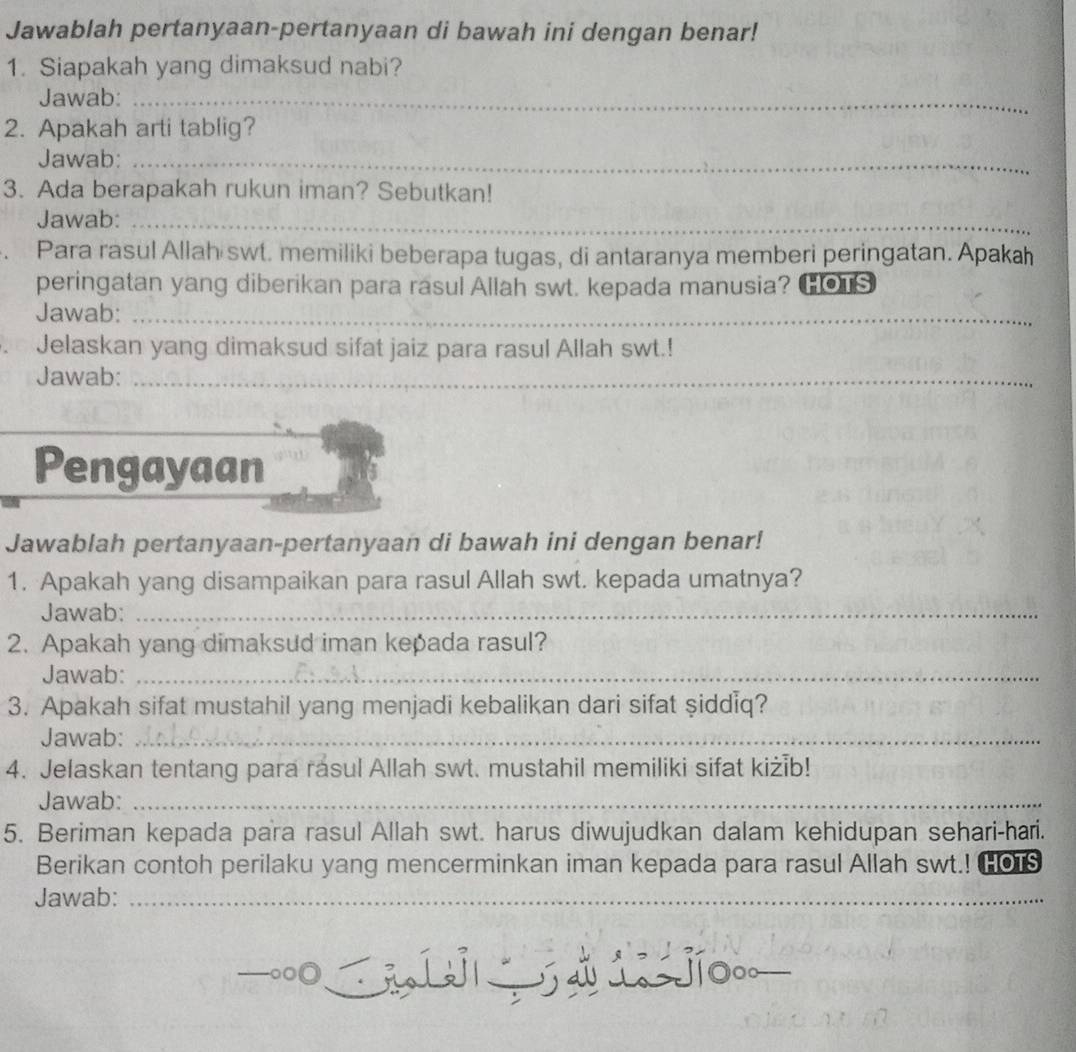 Jawablah pertanyaan-pertanyaan di bawah ini dengan benar!
1. Siapakah yang dimaksud nabi?
Jawab:
2. Apakah arti tablig?
Jawab:
3. Ada berapakah rukun iman? Sebutkan!
Jawab:
. Para rasul Allah swt. memiliki beberapa tugas, di antaranya memberi peringatan. Apakah
peringatan yang diberikan para rasul Allah swt. kepada manusia? HOTS
Jawab:
. Jelaskan yang dimaksud sifat jaiz para rasul Allah swt.!
Jawab:
Pengayaan
Jawablah pertanyaan-pertanyaan di bawah ini dengan benar!
1. Apakah yang disampaikan para rasul Allah swt. kepada umatnya?
Jawab:
2. Apakah yang dimaksud iman kepada rasul?
Jawab:
3. Apakah sifat mustahil yang menjadi kebalikan dari sifat ṣiddīq?
Jawab:
4. Jelaskan tentang para rasul Allah swt. mustahil memiliki sifat kiżīb!
Jawab:
5. Beriman kepada para rasul Allah swt. harus diwujudkan dalam kehidupan sehari-hari.
Berikan contoh perilaku yang mencerminkan iman kepada para rasul Allah swt.! HOTS
Jawab:
اَلْحَمْدُ لِلّٰهِ رَبِّ الْعٰلَمِيْنَ